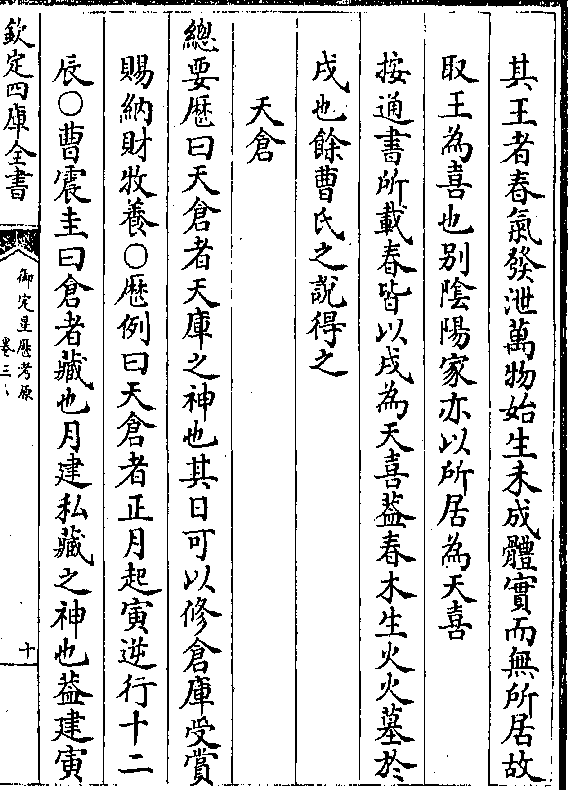 其王者春氣發泄萬物始生未成體實而無所居故
取王為喜也别陰陽家亦以所居為天喜
按通書所載春皆以戌為天喜葢春木生火火墓於
戌也餘曹氏之説得之
天倉
總要厯曰天倉者天庫之神也其日可以修倉庫受賞
賜納財牧養○厯例曰天倉者正月起寅逆行十二
辰○曹震圭曰倉者藏也月建私藏之神也葢建寅
欽定四庫全書
御定星厯考原
卷三
十